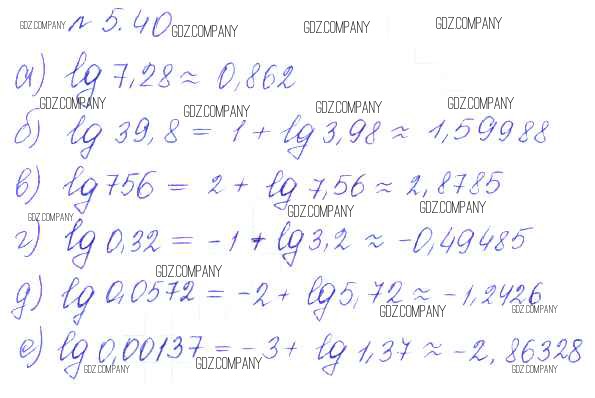 GDZ.COMPANY № 5.40 GDZ.COMPANY GDZ.COMPANY GDZ.COMPANY
а) lg 7,28 ≈ 0,862
GDZ.COMPANY GDZ.COMPANY GDZ.COMPANY GDZ.COMPANY
б) lg 39,8 = 1 + lg 3,98 ≈ 1,59988
в) lg 756 = 2 + lg 7,56 ≈ 2,8785
GDZ.COMPANY GDZ.COMPANY GDZ.COMPANY
г) lg 0,32 = -1 + lg 3,2 ≈ -0,49485
GDZ.COMPANY
д) lg 0,0572 = -2 + lg 5,72 ≈ -1,2426
GDZ.COMPANY GDZ.COMPANY
е) lg 0,00137 = -3 + lg 1,37 ≈ -2,86328
GDZ.COMPANY GDZ.COMPANY GDZ.COMPANY GDZ.COMPANY